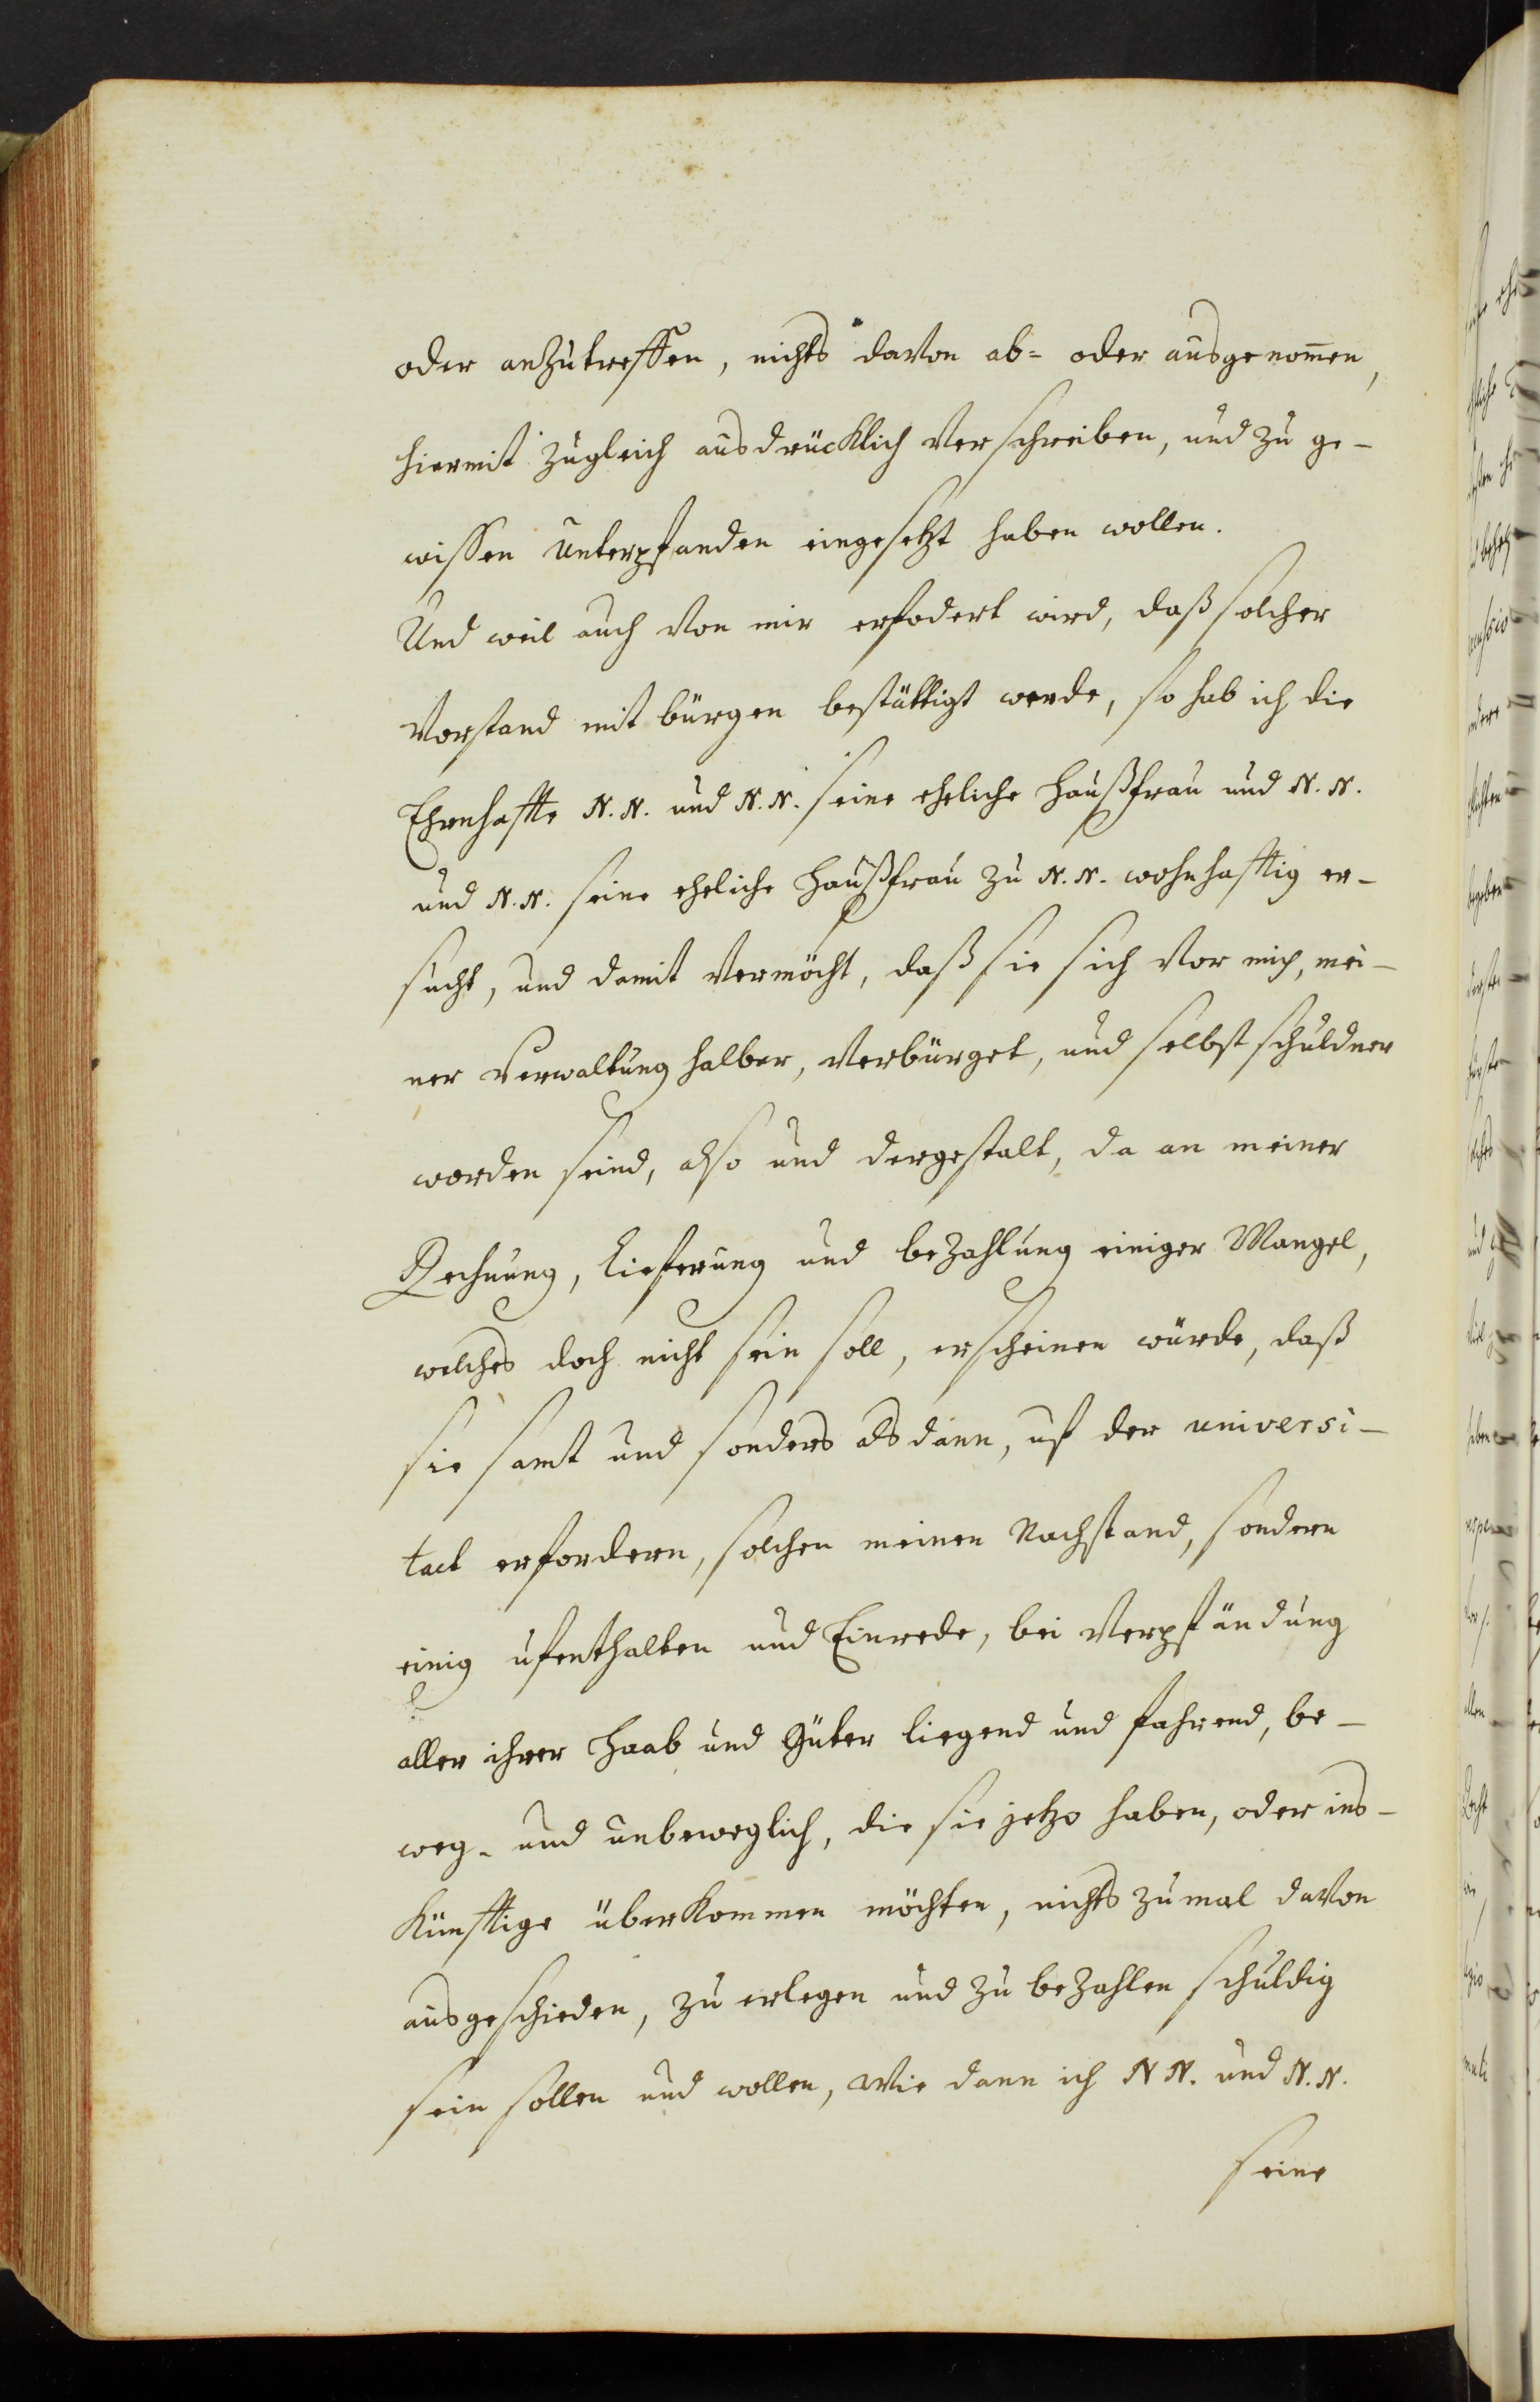 oder anzutreffen, nichts davon ab= oder ausgenom̄en,
hiermit zugleich ausdrücklich verschreiben, und zu ge-
wissen unterpfanden eingesetzt haben wollen.
Und weil auch von mir erfodert wird, daß solcher
Vorstand mit bürgen bestättigt werde, so hab ich die
Ehrnhaffte N. N. und N. N. seine eheliche Haußfrau und N. N.
und N. N. seine eheliche Haußfrau zu N. N. wohnhafftig er-
sucht, und damit vermöcht, daß sie sich vor mich, mei-
ner Verwaltung halber, verbürget, und selbst schuldner
worden seind, also und dergestalt, da an meiner
Rechnung, Lieferung und bezahlung einiger Mangel,
welches doch nicht sein soll, erscheinen würde, daß
sie samt und sonders alsdann, uf der universi-
taet erfordern, solchen meinen Nachstand, sondern
einig ufenthalten und Einrede, bei Verpfändung
aller ihrer Haab und Güter liegend und fahrend, be-
weg- und unbeweglich, die sie jetzo haben, oder ins-
künfftige überkommen möchten, nichts zumal davon
ausgeschieden, zu erlegen und zu bezahlen schuldig
sein sollen und wollen, Wie dann ich N N. und N. N.
seine